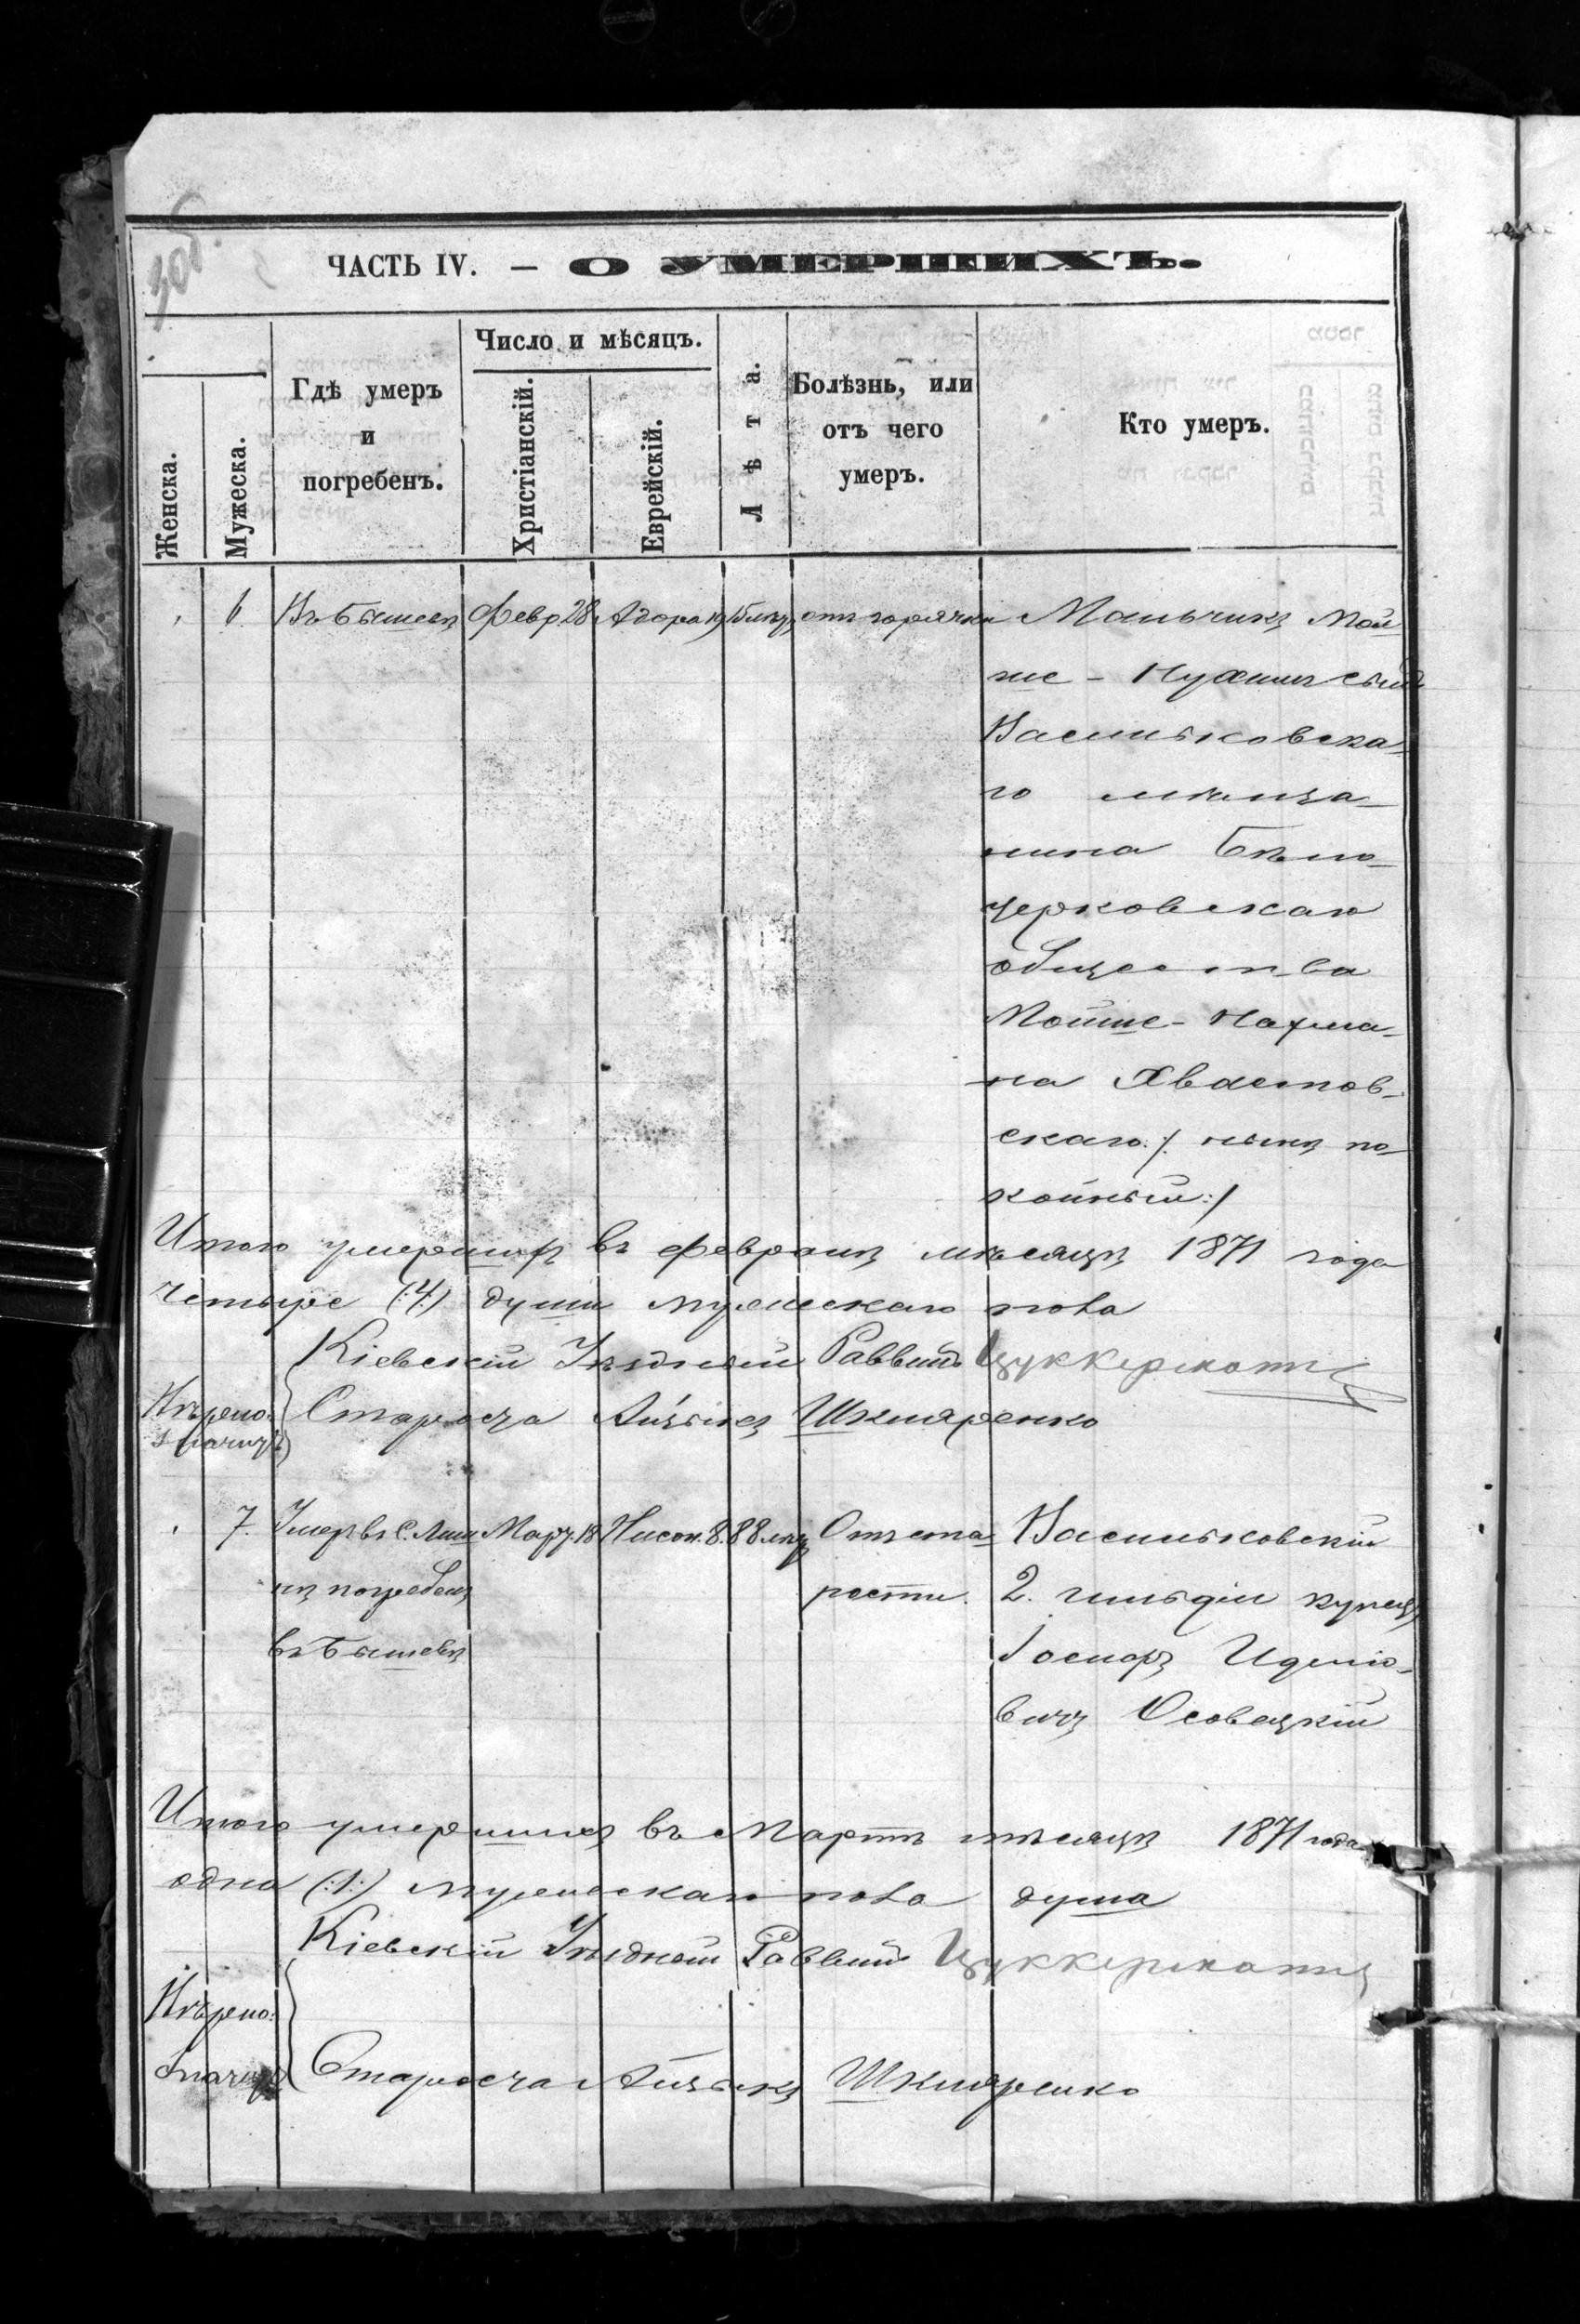 30б.
ЧАСТЬ IV. — О УМЕРШИХЪ.
Женска.
Мужеска.
Гдѣ умеръ
и
погребенъ.
Число и мѣсяцъ.
Христіанскій.
Еврейскій.
Лѣта.
Болѣзнь, или
отъ чего
умеръ.
Кто умеръ.
6. Въ Бышевѣ Февр. 28 Адора 19 лѣтъ отъ горячки Мальчикъ Мой-
ше - Нухимъ сынъ
Васильковска-
го мѣща-
нина Бѣло-
церковскаго
общества
Мойше - Нахма-
на Хвастов-
скаго /: нынѣ по-
койный :/
Итого умершихъ въ Февралѣ мѣсяцѣ 1871 года
Четыре (:4:) души мужескаго пола
Кіевскій Уѣздный Раввинъ Цуккерманъ
Староста Айзыкъ Шкляренко
7. Умеръ въ С. Март. 18 Нисон. 8. 88 лѣтъ Отъ ста- Васильковскій
нѣ погребенъ рости. 2. гильдіи купецъ
въ Бышевѣ Іосифъ Иделіо-
вичъ Осовецкій
Итого умершихъ въ Мартѣ мѣсяцѣ 1871 года
одна (:1:) мужескаго пола душа
Кіевскій Уѣздный Раввинъ Цуккерманъ
Староста Айзыкъ Шкляренко